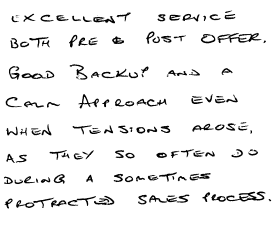 EXCELLENT SERVICE
BOTH PRE & POST OFFER.
GOOD BACKUP AND A
CALM APPROACH EVEN
WHEN TENSIONS AROSE,
AS THEY SO OFTEN DO
DURING A SOMETIMES
PROTRACTED SALES PROCESS.